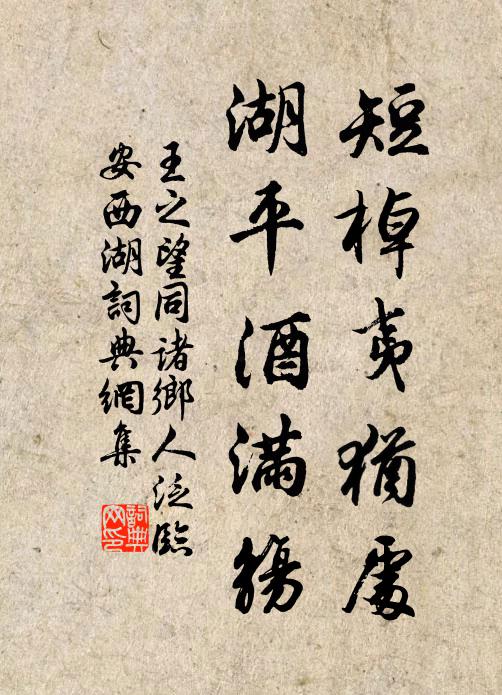 短棹夷猶處
湖平酒滿觴
王之望同諸鄉人泛臨
安西湖詞典網集
詞典网印